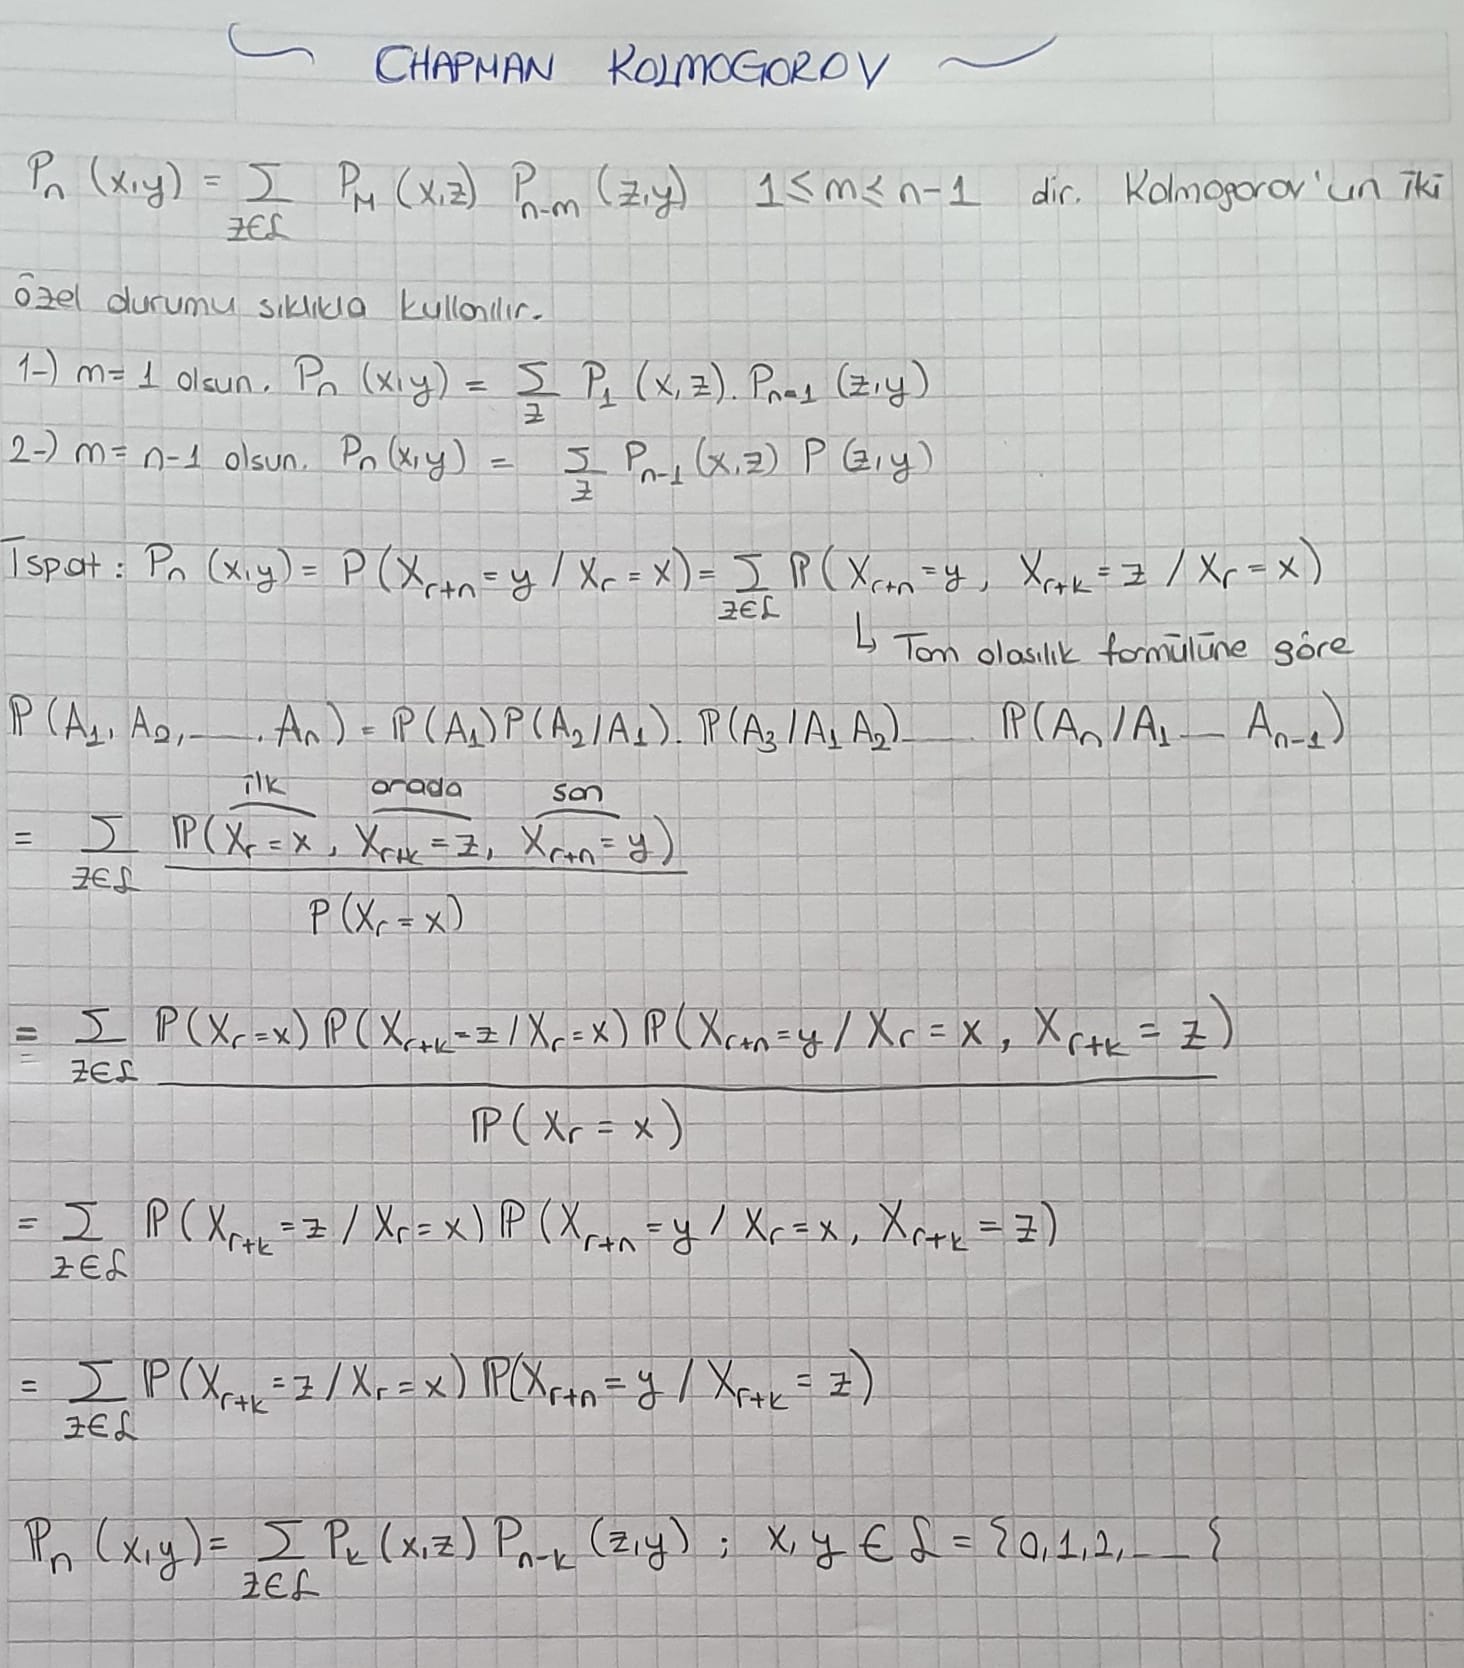 CHAPMAN KOLMOGOROV
Pn (x,y) = Σ z∈𝓛 PM (x,z) Pn-m (z,y) 1≤m≤n-1 dir. Kolmogorov'un iki
özel durumu sıklıkla kullanılır.
1-) m=1 olsun. Pn (x,y) = Σ z P1 (x,z). Pn-1 (z,y)
2-) m=n-1 olsun. Pn(x,y) = Σ z Pn-1 (x,z) P (z,y)
İspat: Pn (x,y) = P(Xr+n=y / Xr=x) = Σ z∈𝓛 ℙ(Xr+n=y, Xr+k=z / Xr=x)
↳ Tam olasılık formülüne göre
ℙ(A1, A2, ―. An) = ℙ(A1)P(A2/A1). ℙ(A3/A1 A2)― ℙ(An/A1 ― An-1)
ilk orada son
= Σ z∈𝓛 ℙ(Xr=x, Xr+k=z, Xr+n=y)
P(Xr=x)
= Σ z∈𝓛 ℙ(Xr=x) ℙ(Xr+k=z/Xr=x) ℙ(Xr+n=y / Xr=x, Xr+k=z)
ℙ(Xr=x)
= Σ z∈𝓛 ℙ(Xr+k=z / Xr=x) ℙ(Xr+n=y / Xr=x, Xr+k=z)
= Σ z∈𝓛 ℙ(Xr+k=z/Xr=x) ℙ(Xr+n=y / Xr+k=z)
ℙn (x,y) = Σ z∈𝓛 Pk (x,z) Pn-k (z,y) ; x,y ∈ 𝓛 = {0,1,2,―}